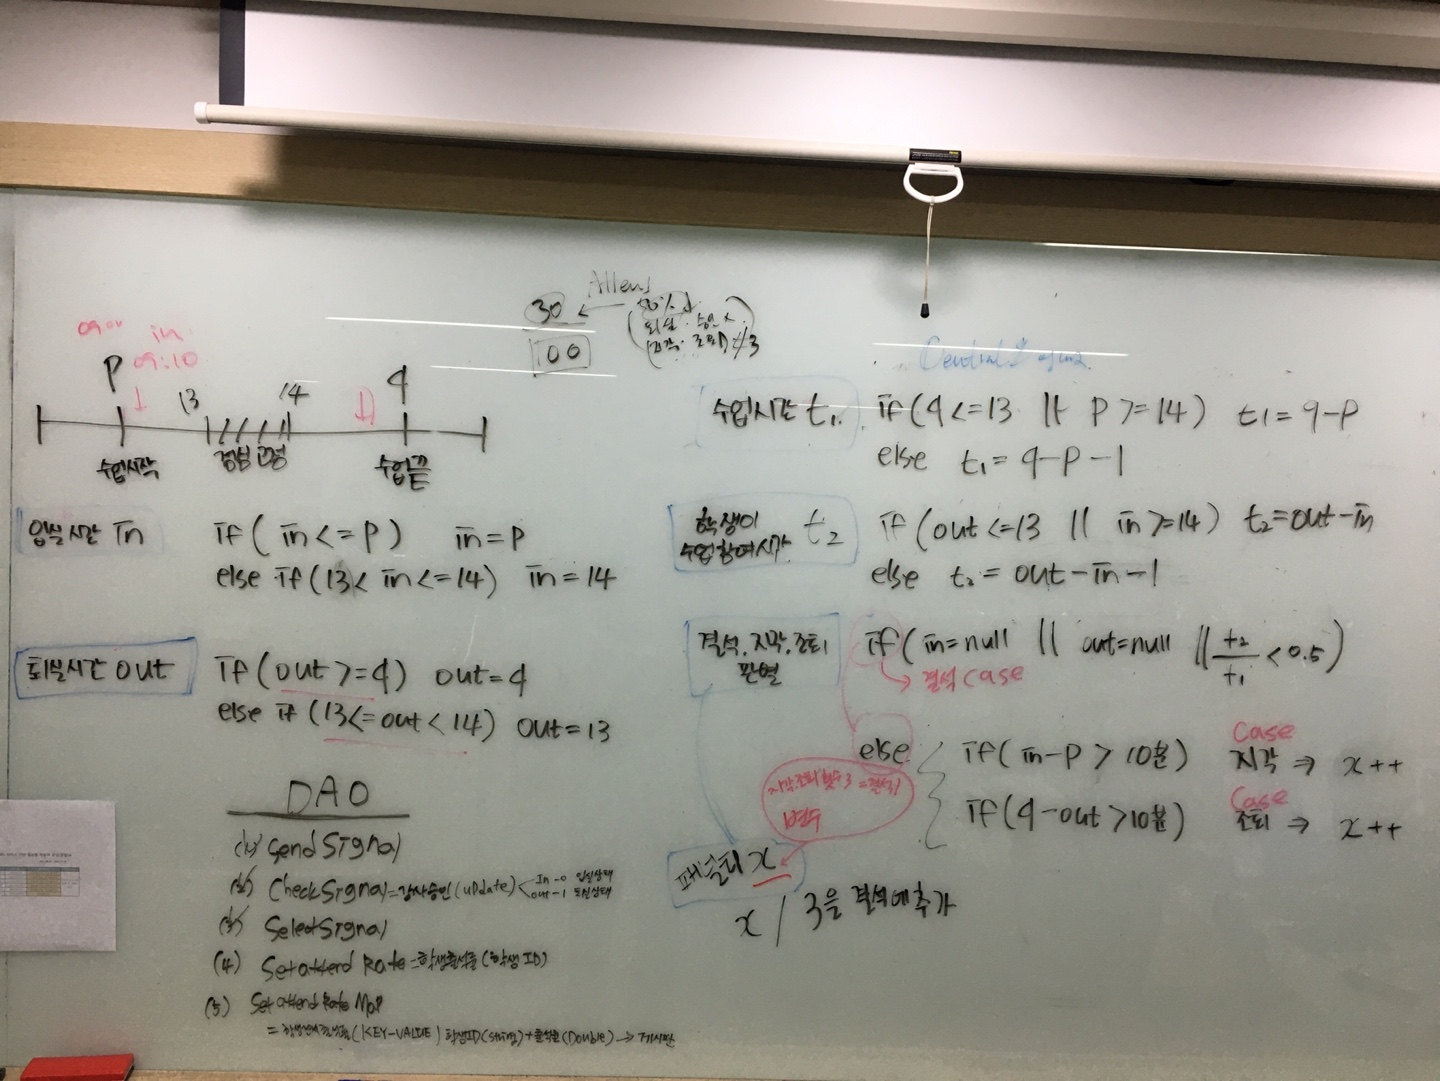 Attens
30
50% ↓
100
퇴실 · 승인 x
지각 · 조퇴 ≠ 3
09:00 in
09:10
P 13 14 q
수업시작 점심 고정 수업끝
입실시간 in
if ( in <= P ) in = P
else if (13 < in <= 14) in = 14
퇴실시간 out
if (out >= q) out = q
else if (13 <= out < 14) out = 13
DAO
(1) Send Signal
(2) Check Signal = 강사승인 (update) In - 0 입실상태
out - 1 퇴실상태
(3) Select Signal
(4) Set attend Rate = 학생출석률 (학생 ID)
(5) Set attend Rate Map
(KEY-VALUE) 학생ID(string) + 출석률(Double) → 게시판
수업시간 t1. if (q <= 13 || P >= 14) t1 = q - P
else t1 = q - P - 1
학생이
수업참여시간 t2
if (out <= 13 || in >= 14) t2 = out - in
else t2 = out - in - 1
결석, 지각, 조퇴
판별
if ( in = null || out = null || t2/t1 < 0.5 )
→ 결석 case
else if ( in - P > 10분) Case
지각 ⇒ x++
if (q - out > 10분) Case
조퇴 ⇒ x++
지각,조퇴 횟수 3 = 결석 1
변수
패널티 x
x / 3을 결석에 추가